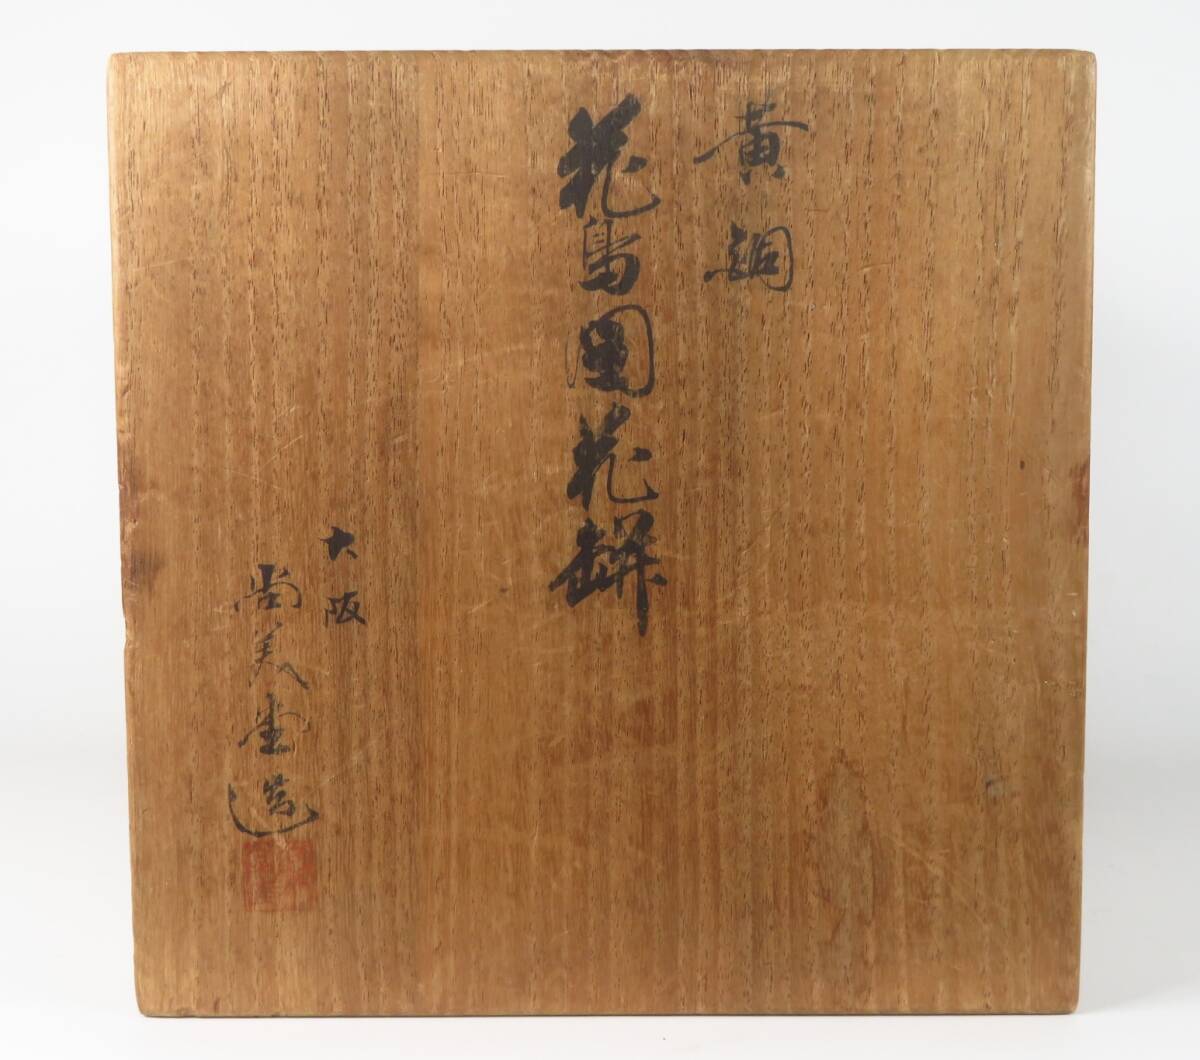 黄銅
花鳥圖花缾
大阪
尚美堂造